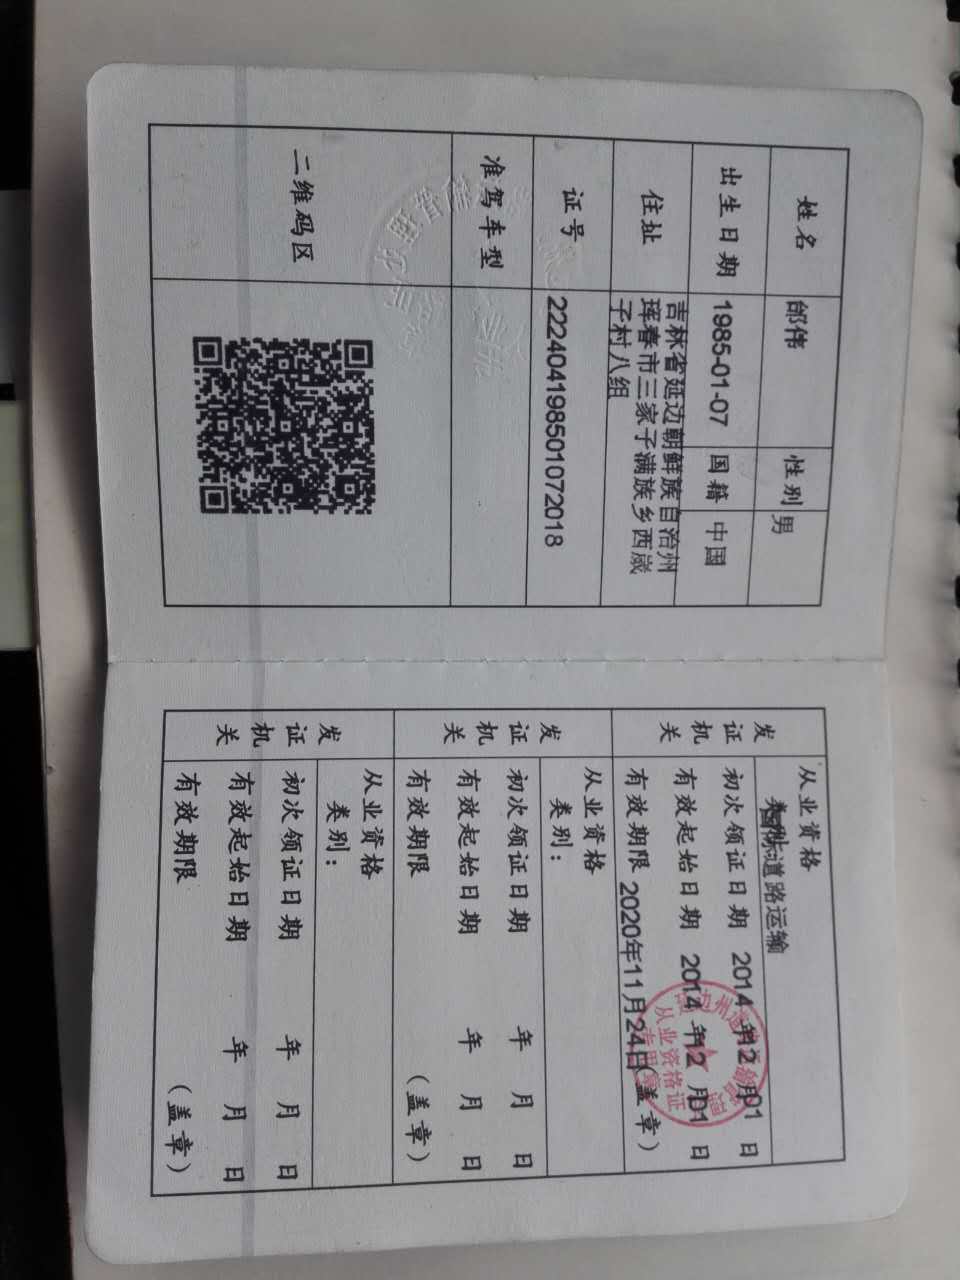 姓名 邰伟 性别 男
出生日期 1985-01-07 国籍 中国
住址 吉林省延边朝鲜族自治州
珲春市三家子满族乡西崴
子村八组
证号 222404198501072018
准驾车型
二维码区
发证机关
从业资格
类别:国际道路运输
初次领证日期 2014 年12 月01 日
有效起始日期 2014 年12 月01 日
有效期限 2020年11月24日(盖章)
从业资格证
专用章
发证机关
从业资格
类别:
初次领证日期 年 月 日
有效起始日期 年 月 日
有效期限 (盖章)
发证机关
从业资格
类别:
初次领证日期 年 月 日
有效起始日期 年 月 日
有效期限 (盖章)